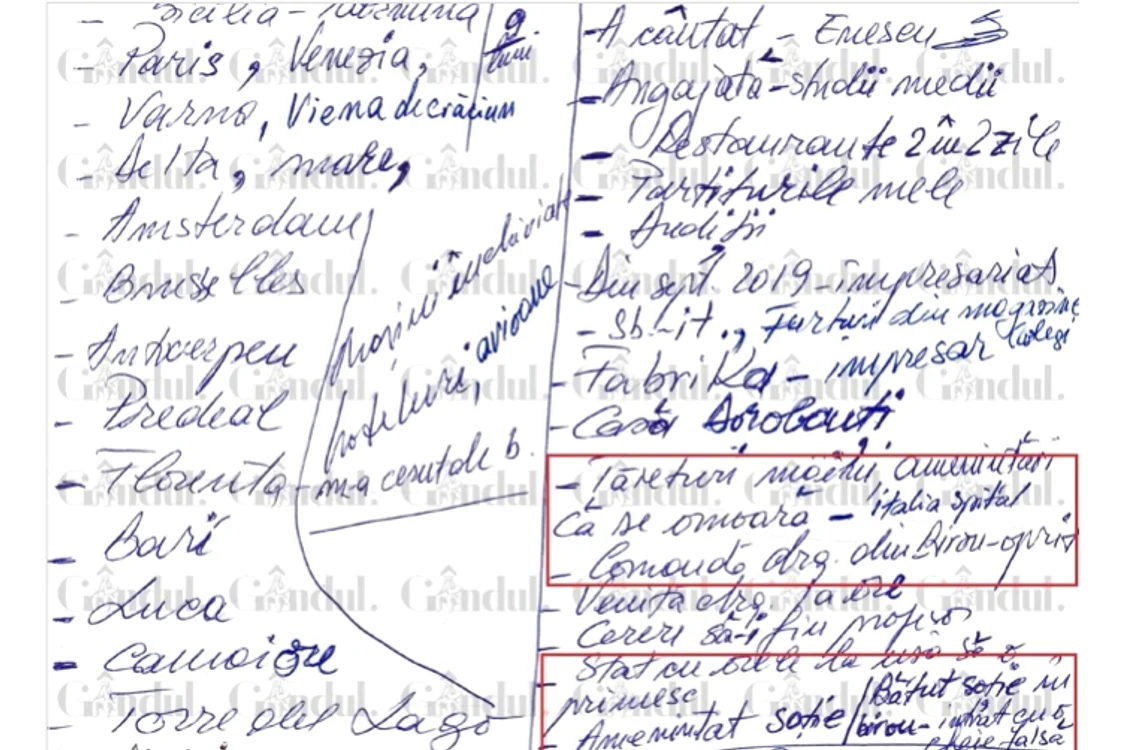 - Sicilia - Taormina
- Paris, Venezia,
9 luni
- Varna, Viena de crăciun
- Delta, mare,
- Amsterdam
- Bruselles
- Antwerpen
- Predeal
- Florența - m-a cerut de b.
- Bari
- Luca
- Camoiore
- Torre del Lago
hoteluri, avioane
- A cântat - Enescu
- Angajată - studii medii
- Restaurante 2 în 2 zile
- Partiturile mele
- Audiții
- Din sept. 2019 - impresariat
- Sb.-it., Furturi din magazine
colegi
- Fabrika - impresar
- Casă Dorobanti
- Tăieturi mâini amenințări
Că se omoară - italia spital
- Comandă drg. din Birou - oprit
- Venită drg. la ore
- Cereri să-i fiu profesor
- Stat cu orele la ușă să o
primesc
Amenințat soție / Bătut soție în
birou - intrat cu o
cheie falsă
Gândul. Gândul. Gândul. Gândul. Gândul. Gândul.